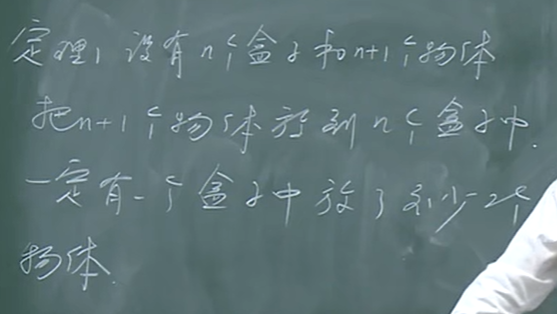 定理1 设有n个盒子和n+1个物体
把n+1个物体放到n个盒子中.
一定有一个盒子中放了至少2个
物体.